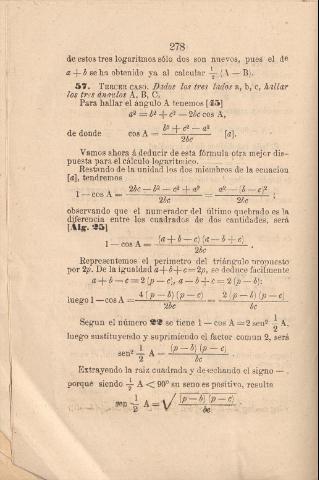 278
de estos tres logaritmos sólo dos son nuevos, pues el de
a + b se ha obtenido ya al calcular 1/2 (A — B).
57. TERCER CASO. Dados los tres lados a, b, c, hallar
los tres ángulos A, B, C.
Para hallar el ángulo A tenemos [45]
a² = b² + c² — 2bc cos A,
de donde cos A = (b² + c² — a²)/2bc [a].
Vamos ahora á deducir de esta fórmula otra mejor dis-
puesta para el cálculo logarítmico.
Restando de la unidad los dos miembros de la ecuacion
[a], tendremos
1 — cos A = (2bc — b² — c² + a²)/2bc = (a² — (b — c)²)/2bc ;
observando que el numerador del último quebrado es la
diferencia entre los cuadrados de dos cantidades, será
[Alg. 25]
1 — cos A = (a + b — c) (a — b + c)/2bc .
Representemos el perímetro del triángulo propuesto
por 2p. De la igualdad a + b + c = 2p, se deduce facilmente
a + b — c = 2 (p — c), a — b + c = 2 (p — b):
luego 1 — cos A = 4 (p — b) (p — c)/2bc = 2 (p — b) (p — c)/bc
Segun el número 22 se tiene 1 — cos A = 2 sen² 1/2 A,
luego sustituyendo y suprimiendo el factor comun 2, será
sen² 1/2 A = (p — b) (p — c)/bc
Extrayendo la raiz cuadrada y desechando el signo — .
porque siendo 1/2 A < 90° su seno es positivo, resulta
sen 1/2 A = √((p — b) (p — c)/bc) .